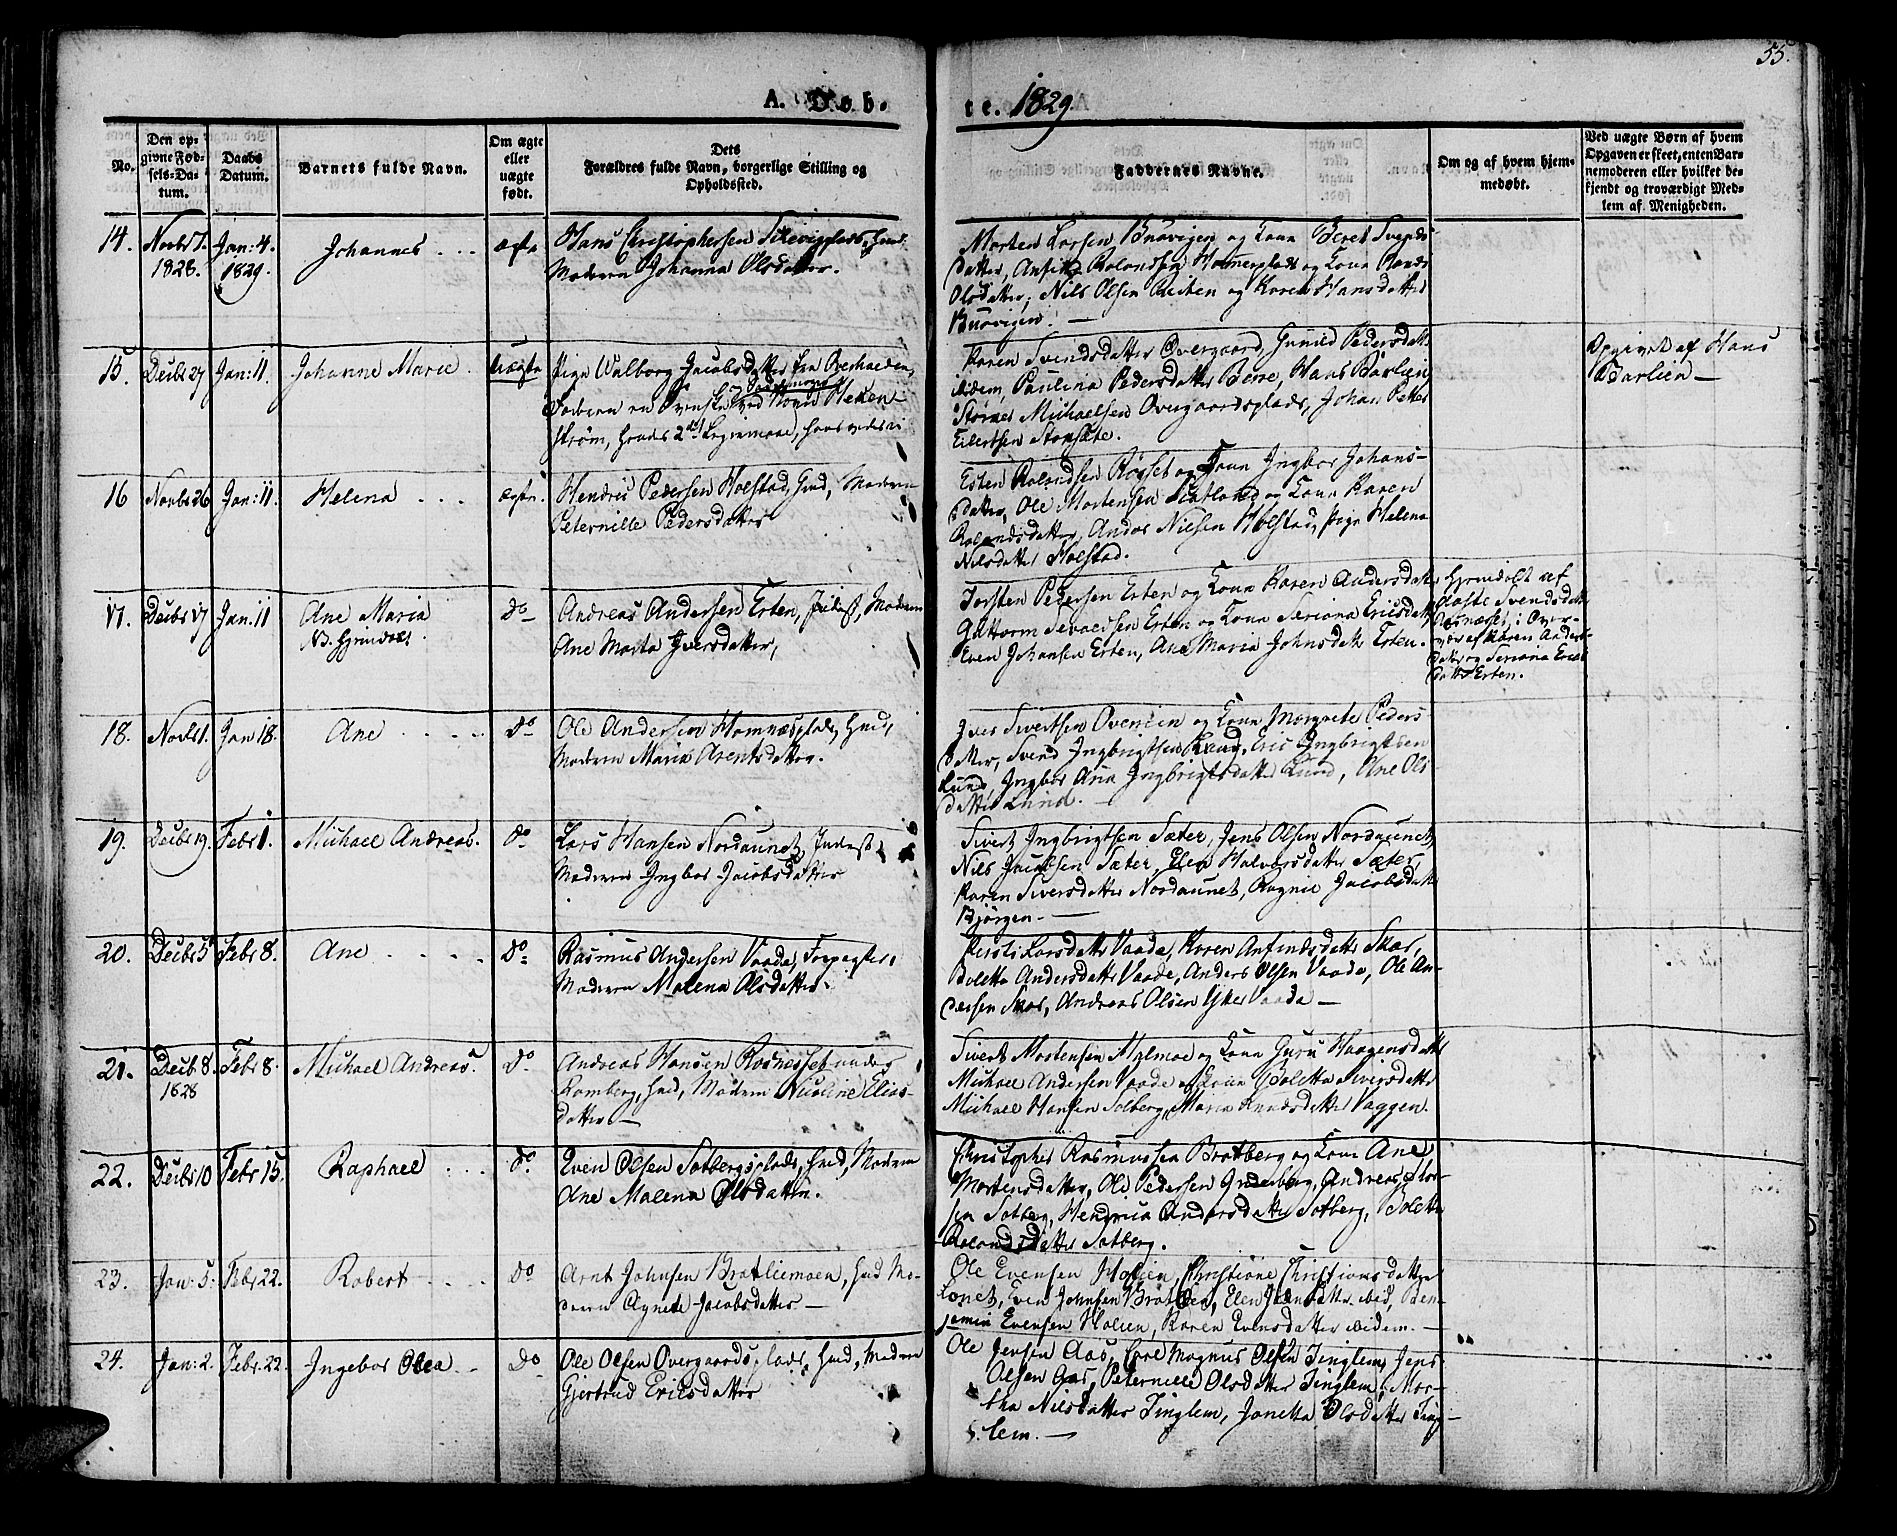 55.
A. Døb-
te. 1829.
No.
Den op-
givne Fød-
sels-Da-
tum.
Daabs
Datum.
Barnets fulde Navn.
Om ægte
eller
uægte
født.
Dets
Forældres fulde Navn, borgerlige Stilling og
Opholdssted.
Faddernes Navne.
Om og af hvem hjem-
medøbt.
Ved uægte Børn af hvem
Opgaven er skeet, enten Bar-
nemoderen eller hvilket be-
kjendt og troværdigt Med-
lem af Menigheden.
14.
1828.
Jan: 4.
1829.
Johannes
ægte
Hans Christophersen
Moderen Johanna Olsdatter.
Morten Larsen Buvigen og Kone Beret Svends-
datter,
Olsdatter, Nils Olsen Reiten og Karen Hansdatter
Buvigen. —
15.
Decbr 27
Jan: 11.
Johanne Marie.
uægte
Pige Walborg Jacobsdatter fra
Faderen en Svensk ved Navn
strøm,
Karen Svendsdatter Overgaard, Gunild Pedersdatter
ibidem, Paulina Pedersdatter Berre, Hans Barlien,
Michaelsen Overgaardsplads, Johan Petter
Eilertsen
Opgivet af Hans
Barlien —
16
Novbr 26
Jan: 11.
Helena
ægte.
Hendric Pedersen Holstad, Huusmd, Moderen
Peternille Pedersdatter
Esten Roland­sen Røsset og Kone Ingbor Johans-
datter, Ole Mortensen og Kone Karen
Rolandsdatter, Andor Nilsen Holstad, Pige Helena
Nilsdatter Holstad.
17.
Decbr 17
Jan: 11
Ane Maria
NB. Hjemdøbt.
Do
Andreas Andersen Erten, Inderst, Moderen
Ane Marta Iversdatter,
Torsten Pedersen Erten og Kone Karen Andersdatter
Guttorm Sivertsen Erten og Kone Seriana Ericsdatter
Even Johansen Erten, Ane Maria Johnsdatter Erten.
Hjemdøbt af
Svendsdatter
i Over-
vær af Karen Anders-
datter og Seriana Erics-
datter Erten.
18.
Novbr 1.
Jan 18.
Ane
Do
Ole Andersen Homnæsplads, Huusmd,
Moderen Maria Arentsdatter.
Iver Sivertsen og Kone Margrete Peders-
datter, Svend Ingbrigtsen Lund, Eric Ingbrigtsen
Lund, Ingbor Ana Ingbrigtsdatter Lund, Ane Ols-
datter Lund. —
19.
Decbr 19.
Febr 1.
Michael Andreas.
Do
Lars Hansen Nordaunet, Inderst,
Moderen Ingbor Jacobsdatter
Sivert Ingbrigtsen Sæter, Jens Olsen Nordaunet,
Nils Sæter, Elen Halvorsdatter Sæter,
Karen Siversdatter Nordaunet, Ragnil Jacobsdatter
Bjørgen. —
20.
Decbr 5
Febr 8.
Ane
Do
Rasmus Andersen Vaade, Forpagter,
Moderen Malena Olsdatter.
Kirsti Larsdatter Vaade, Karen Anfindsdatter Skar,
Boletta Andersdatter Vaade, Anders Olsen Vaade, Ole An-
dersen Skar, Andreas Olsen Vaade —
21.
Decb 8.
1828
Febr 8.
Michael Andreas.
Do
Andreas Hansen under
Romberg, Huusmd, Moderen Nicoline Elias-
datter —
Sivert Mortensen og Kone Guru Haagensdatter
Michael Andersen Vaade og Kone Boletta Siversdatter
Michael Hansen Solberg, Maria Knudsdatter Vaggen.
22.
Decbr 10
Febr 15.
Raphael
Do
Even Olsen Solbergsplads, Huusmd, Moderen
Ane Malena Olsdatter.
Christopher Rasmussen Bratberg og Kone Ane
Mortensdatter, Ole Pedersen Andreas
sen Solberg, Hendrica Andersdatter Solberg, Boletta
Rolandsdatter Solberg.
23.
Jan: 5.
Febr 22.
Robert
Do
Arnt Johnsen Bratliemoen, Huusmd, Mo-
deren Agnete Jacobsdatter —
Ole Evensen Holien, Christiane Christiansdatter
Even Johnsen Bratlien, Elen ibid, Ben-
jamin Evensen Holien, Karen Evensdatter ibidem. —
24.
Jan: 2.
Febr 22.
Ingebor Olea
Do
Ole Olsen Overgaardsplads, Huusmd, Moderen
Gjertrud Ericsdatter
Ole Jensen Aas, Carl Magnus Olsen Tinglem, Jens
Olsen Peternille Olsdatter Tinglem, Mar-
tha Nilsdatter Tinglem, Janetta Olsdatter Ting-
lem. —